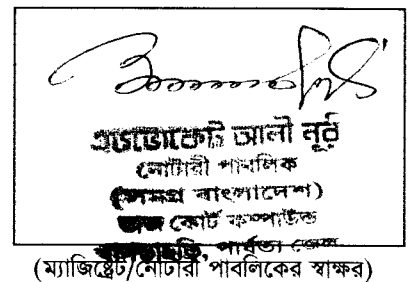 এডভোকেট আলী নূর
নোটারী পাবলিক
(সমগ্র বাংলাদেশ)
জজ কোর্ট কম্পাউন্ড
পার্বত্য জেলা
(ম্যাজিষ্ট্রেট/নোটারী পাবলিকের স্বাক্ষর)